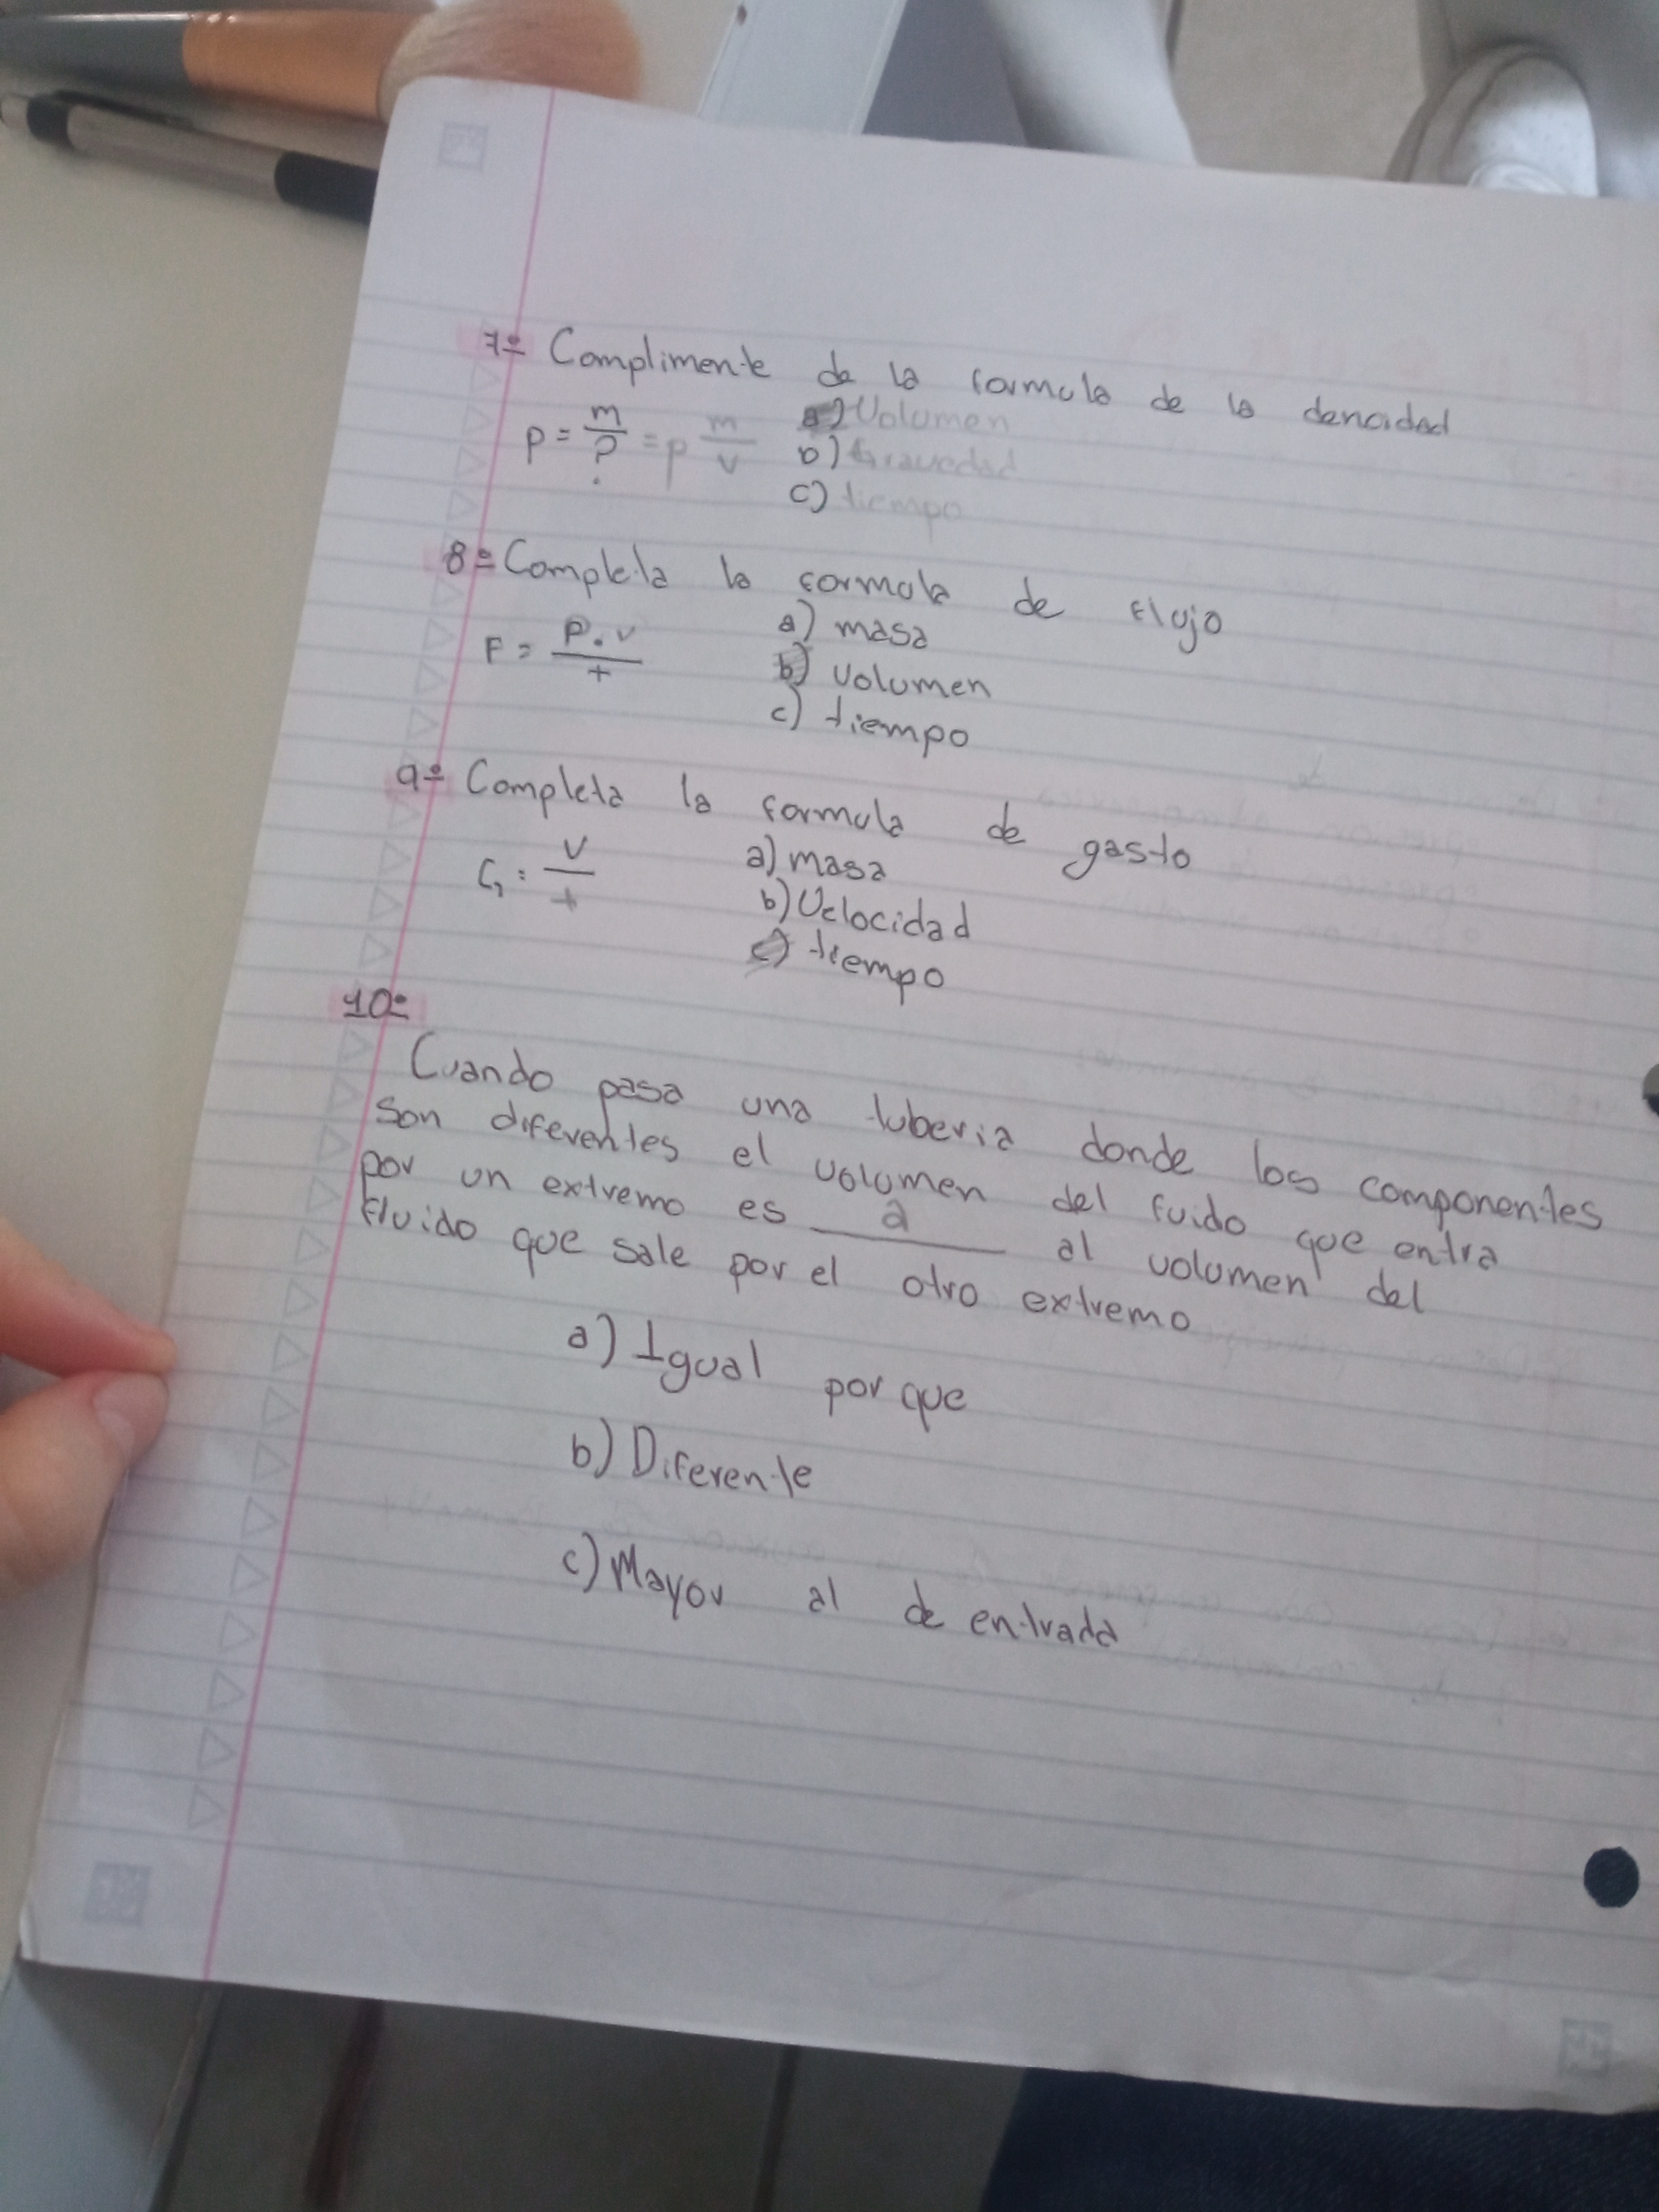 7º Complimente de la formula de la dencidad
p = m/? = p m/v a) Volumen
b) Gravedad
c) tiempo
8º Completa la formula de flujo
F = P.v/t a) masa
b) Volumen
c) tiempo
9º Completa la formula de gasto
G = V/t a) masa
b) Velocidad
c) tiempo
10º
Cuando pasa una tuberia donde los componentes
son diferentes el volumen del fuido que entra
por un extremo es a al volumen del
fluido que sale por el otro extremo
a) Igual por que
b) Diferente
c) Mayor al de entrada